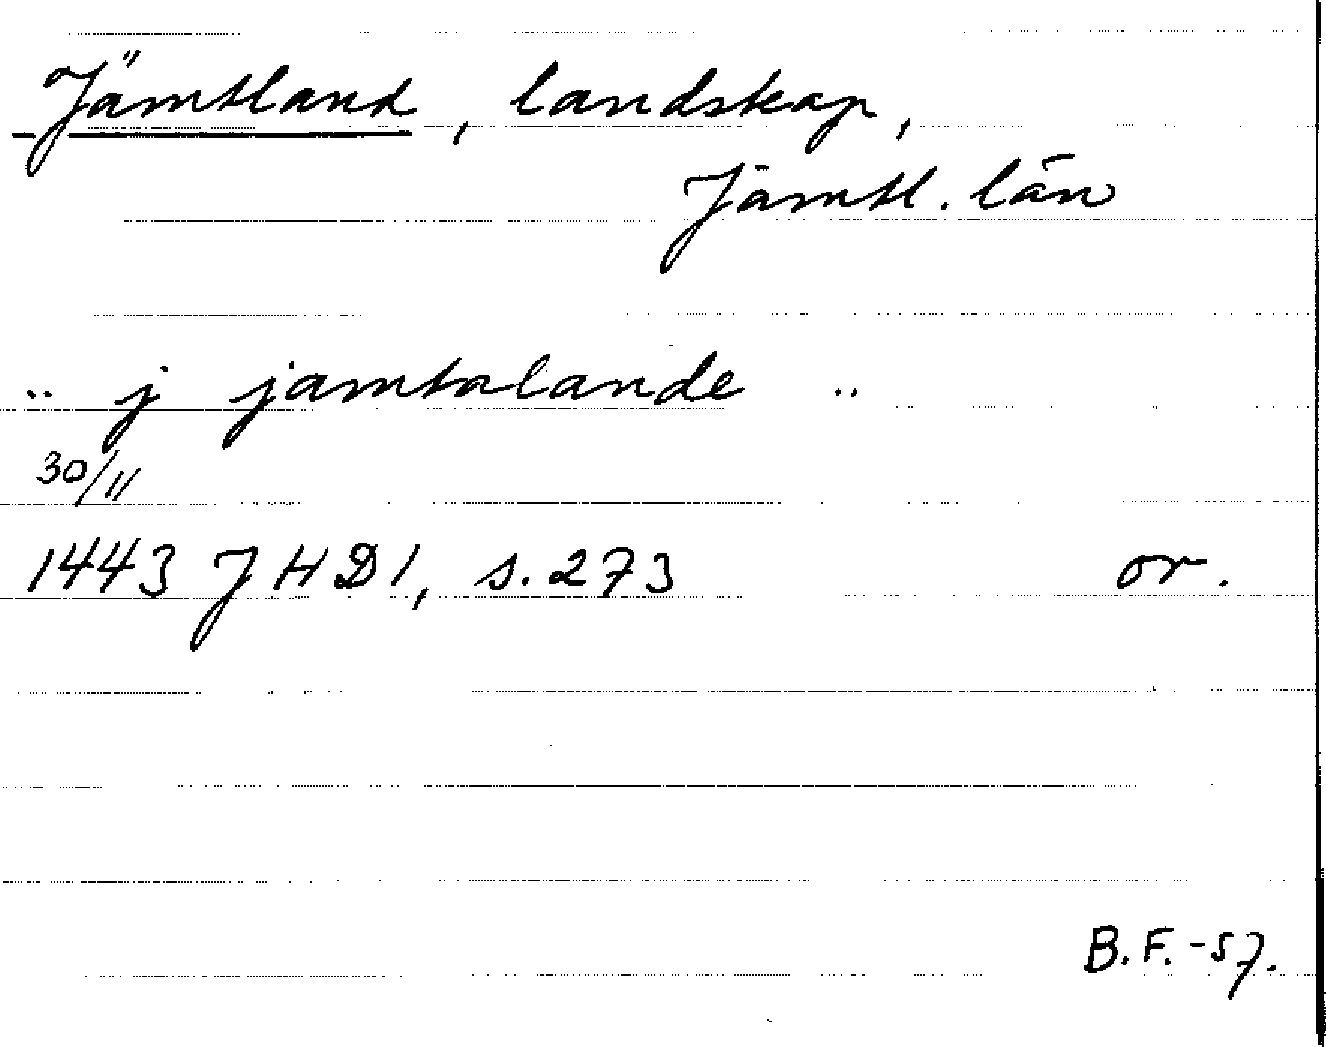 Jämtland, landskap,
Jämtl. län
.. j jamtalande ..
30/11
1443 JHD1, s. 273 or.
B.F. -57.